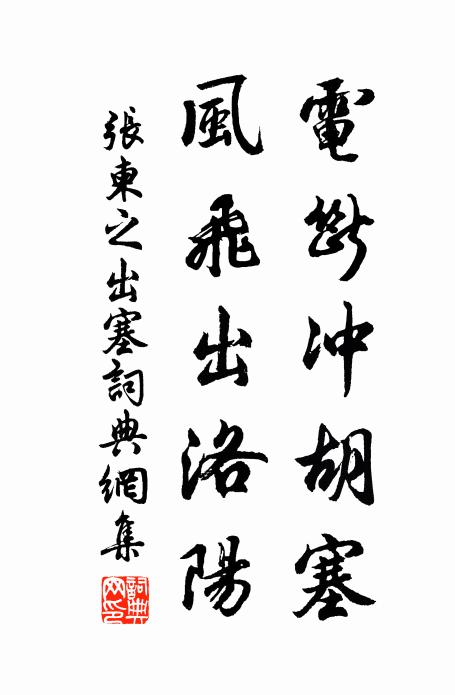 電斷冲胡塞
風飛出洛陽
張東之出塞詞典網集
詞典網印